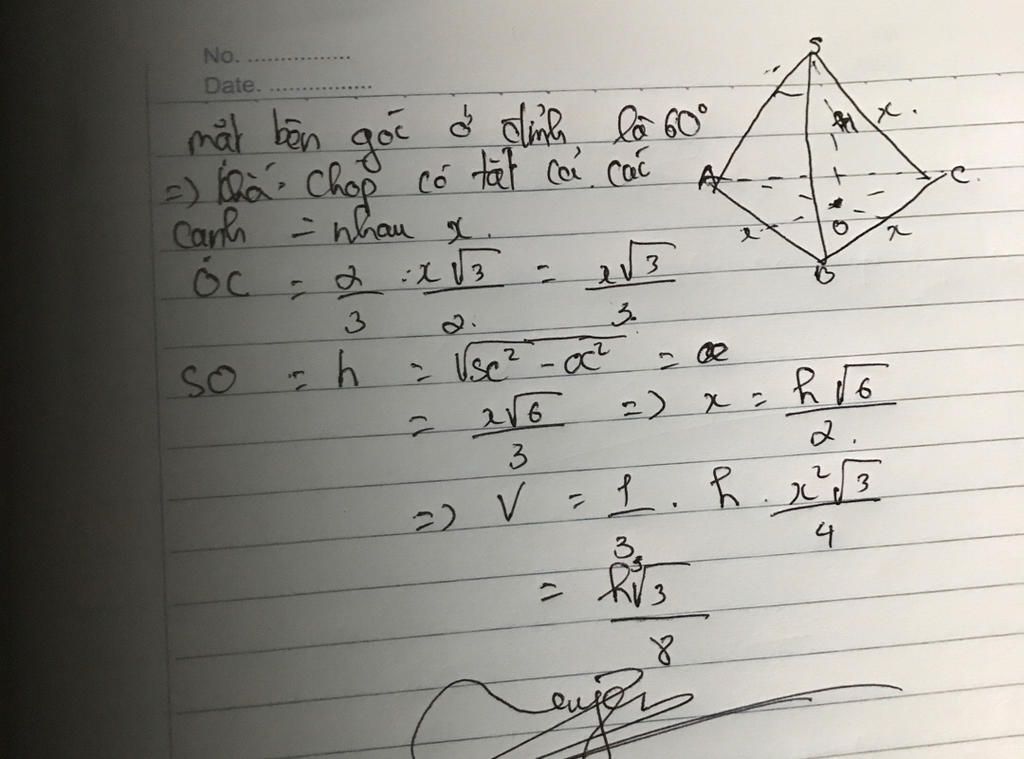 No. ................
Date. ................
mặt bên góc ở đỉnh là 60°
=> Chóp có tất cả các
cạnh = nhau x.
OC = 2/3 . x√3/2. = x√3/3.
SO = h = √(SC² - OC²) =
= x√6/3 => x = h√6/2.
=> V = 1/3 . h . x²√3/4
= h³√3/8
S
x.
A
C.
O
x
x
B
h